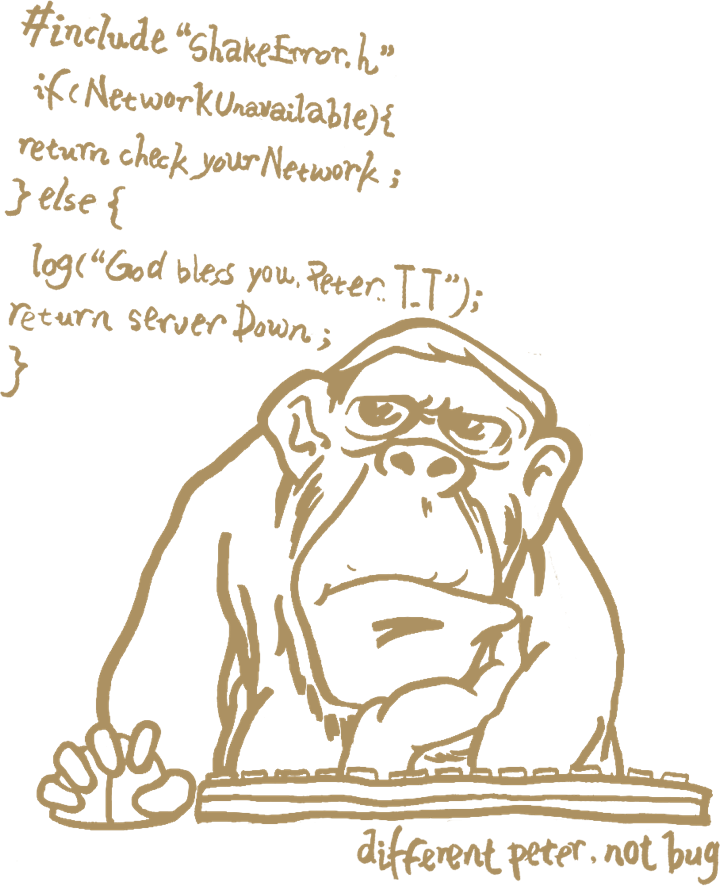 #include "ShakeError.h"
if(NetworkUnavailable){
return check yourNetwork;
} else {
log("God bless you, Peter.. T_T");
return serverDown;
}
different peter. not bug